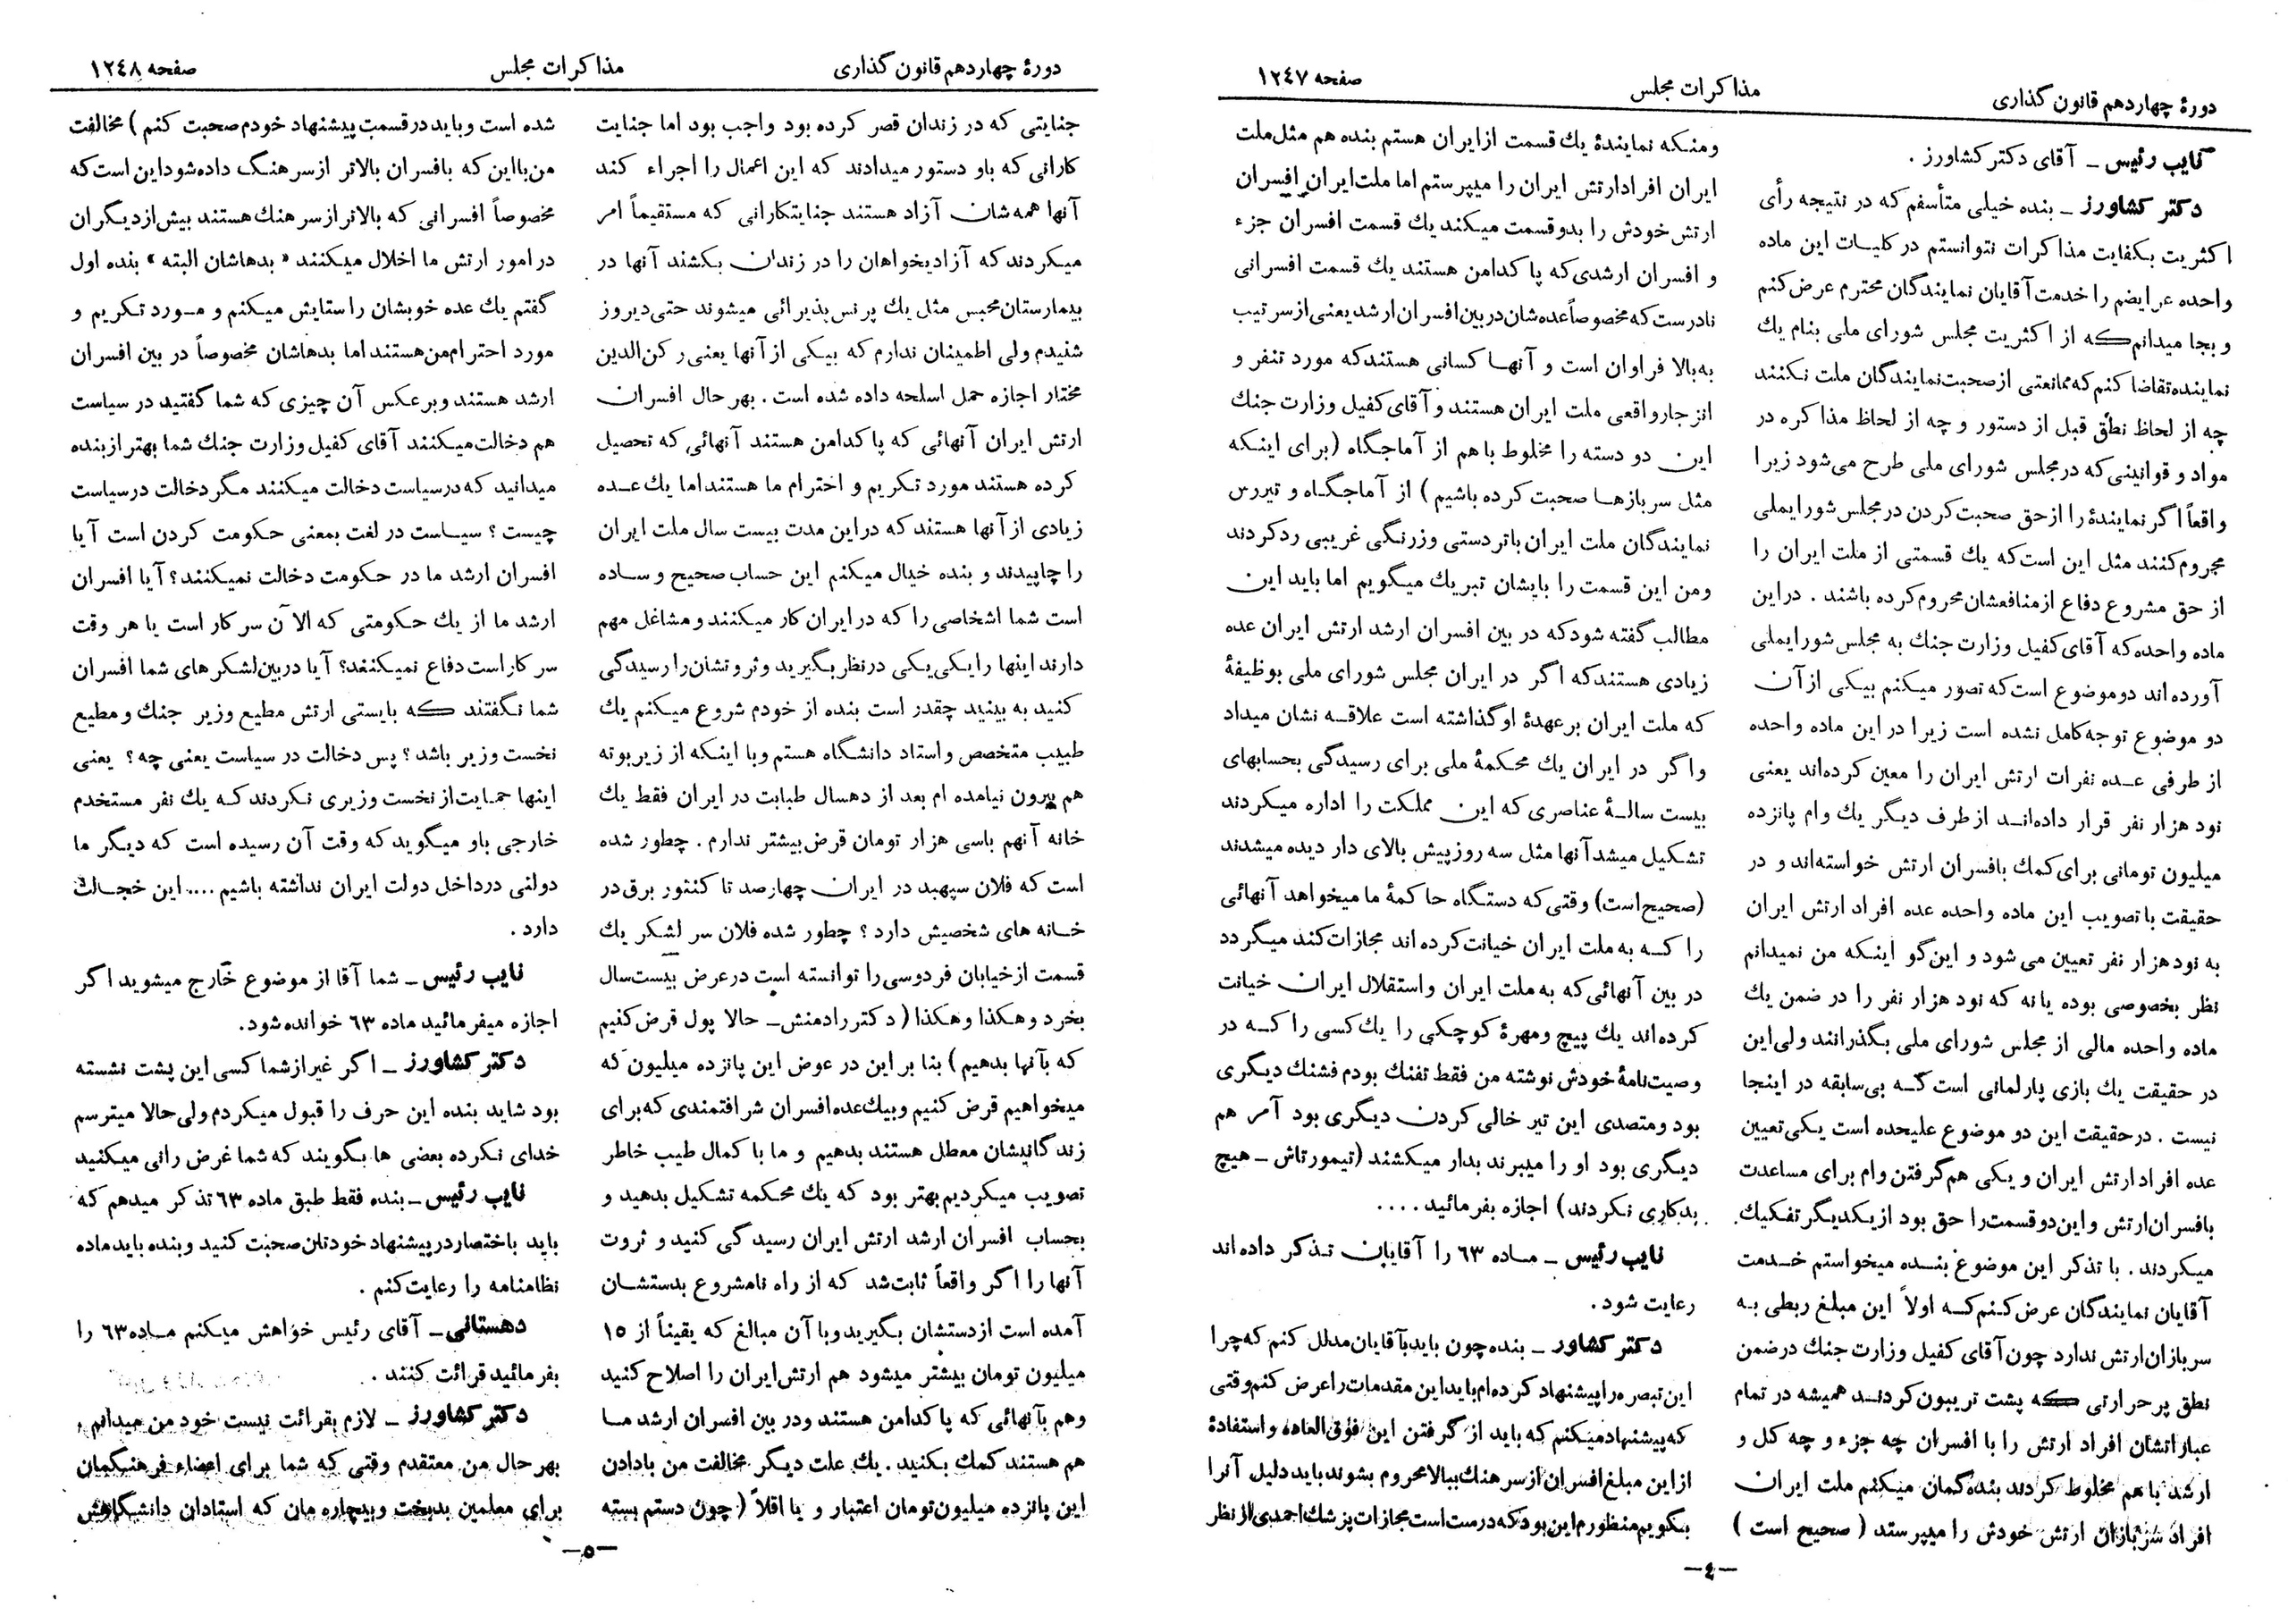 دورهٔ چهاردهم قانون گذاری
مذاکرات مجلس
صفحه ۱۲٤۷
نایب رئیس ـ آقای دکتر کشاورز .
دکتر کشاورز ـ بنده خیلی متأسفم که در نتیجه رأی
اکثریت بکفایت مذاکرات نتوانستم در کلیات این ماده
واحده عرایضم را خدمت آقایان نمایندگان محترم عرض کنم
و بجا میدانم که از اکثریت مجلس شورای ملی بنام یك
نماینده تقاضا کنم که ممانعتی از صحبت نمایندگان ملت نکنند
چه از لحاظ نطق قبل از دستور و چه از لحاظ مذاکره در
مواد و قوانینی که در مجلس شورای ملی طرح می‌شود زیرا
واقعاً اگر نمایندهٔ را از حق صحبت کردن در مجلس شورایملی
محروم کنند مثل این است که یك قسمتی از ملت ایران را
از حق مشروع دفاع از منافعشان محروم کرده باشند . در این
ماده واحده که آقای کفیل وزارت جنك به مجلس شورایملی
آورده‌اند دو موضوع است که تصور میکنم بیکی از آن
دو موضوع توجه کامل نشده است زیرا در این ماده واحده
از طرفی عده نفرات ارتش ایران را معین کرده‌اند یعنی
نود هزار نفر قرار داده‌اند از طرف دیگر یك وام پانزده
میلیون تومانی برای کمك بافسران ارتش خواسته‌اند و در
حقیقت با تصویب این ماده واحده عده افراد ارتش ایران
به نود هزار نفر تعیین می شود و این گو اینکه من نمیدانم
نظر بخصوصی بوده یا نه که نود هزار نفر را در ضمن یك
ماده واحده مالی از مجلس شورای ملی بگذرانند ولی این
در حقیقت یك بازی پارلمانی است که بی سابقه در اینجا
نیست . در حقیقت این دو موضوع علیحده است یکی تعیین
عده افراد ارتش ایران و یکی هم گرفتن وام برای مساعدت
بافسران ارتش و این دو قسمت را حق بود از یکدیگر تفکیك
میکردند . با تذکر این موضوع بنده میخواستم خدمت
آقایان نمایندگان عرض کنم که اولاً این مبلغ ربطی به
سربازان ارتش ندارد چون آقای کفیل وزارت جنك در ضمن
نطق پر حرارتی که پشت تریبون کردند همیشه در تمام
عباراتشان افراد ارتش را با افسران چه جزء و چه کل و
ارشد با هم مخلوط کردند بنده گمان میکنم ملت ایران
افراد سربازان ارتش خودش را میپرستد ( صحیح است )
ومنکه نمایندهٔ یك قسمت از ایران هستم بنده هم مثل ملت
ایران افراد ارتش ایران را میپرستم اما ملت ایران افسران
ارتش خودش را بدو قسمت میکند یك قسمت افسران جزء
و افسران ارشدی که پاکدامن هستند یك قسمت افسرانی
نادرست که مخصوصاً عده‌شان در بین افسران ارشد یعنی از سرتیب
به بالا فراوان است و آنها کسانی هستند که مورد تنفر و
انزجار واقعی ملت ایران هستند و آقای کفیل وزارت جنك
این دو دسته را مخلوط باهم از آماجگاه (برای اینکه
مثل سربازها صحبت کرده باشیم ) از آماجگاه و تیررس
نمایندگان ملت ایران با تردستی و زرنگی غریبی رد کردند
ومن این قسمت را بایشان تبریك میگویم اما باید این
مطالب گفته شود که در بین افسران ارشد ارتش ایران عده
زیادی هستند که اگر در ایران مجلس شورای ملی بوظیفهٔ
که ملت ایران برعهدهٔ او گذاشته است علاقه نشان میداد
و اگر در ایران یك محکمهٔ ملی برای رسیدگی بحسابهای
بیست سالهٔ عناصری که این مملکت را اداره میکردند
تشکیل میشد آنها مثل سه روز پیش بالای دار دیده میشدند
(صحیح است) وقتی که دستگاه حاکمهٔ ما میخواهد آنهائی
را که به ملت ایران خیانت کرده‌اند مجازات کند میگردد
در بین آنهائی که به ملت ایران و استقلال ایران خیانت
کرده‌اند یك پیچ و مهرهٔ کوچکی را یك کسی را که در
وصیت نامهٔ خودش نوشته من فقط تفنك بودم فشنك دیگری
بود و متصدی این تیر خالی کردن دیگری بود آمر هم
دیگری بود او را میبرند بدار میکشند (تیمورتاش ـ هیچ
بدکاری نکردند) اجازه بفرمائید ....
نایب رئیس ـ ماده ٦٣ را آقایان تذکر داده‌اند
رعایت شود .
دکتر کشاور ـ بنده چون باید بآقایان مدلل کنم که چرا
این تبصره را پیشنهاد کرده‌ام باید این مقدمات را عرض کنم وقتی
که پیشنهاد میکنم که باید از گرفتن این فوق العاده و استفادهٔ
از این مبلغ افسران از سرهنك ببالا محروم بشوند باید دلیل آنرا
بگویم منظورم این بود که درست است مجازات پزشك احمدی از نظر
ـ٤ـ
دورهٔ چهاردهم قانون گذاری
مذاکرات مجلس
صفحه ۱۲٤۸
جنایتی که در زندان قصر کرده بود واجب بود اما جنایت
کارانی که باو دستور میدادند که این اعمال را اجراء کند
آنها همه شان آزاد هستند جنایتکارانی که مستقیماً امر
میکردند که آزادیخواهان را در زندان بکشند آنها در
بیمارستان محبس مثل یك پرنس پذیرائی میشوند حتی دیروز
شنیدم ولی اطمینان ندارم که بیکی از آنها یعنی رکن‌الدین
مختار اجازه حمل اسلحه داده شده است . بهر حال افسران
ارتش ایران آنهائی که پاکدامن هستند آنهائی که تحصیل
کرده هستند مورد تکریم و احترام ما هستند اما یك عده
زیادی از آنها هستند که در این مدت بیست سال ملت ایران
را چاپیدند و بنده خیال میکنم این حساب صحیح و ساده
است شما اشخاصی را که در ایران کار میکنند و مشاغل مهم
دارند اینها را یکی یکی در نظر بگیرید و ثروتشان را رسیدگی
کنید به بینید چقدر است بنده از خودم شروع میکنم یك
طبیب متخصص و استاد دانشگاه هستم و با اینکه از زیر بوته
هم بیرون نیامده ام بعد از دهسال طبابت در ایران فقط یك
خانه آنهم باسی هزار تومان قرض بیشتر ندارم . چطور شده
است که فلان سپهبد در ایران چهارصد تا کنتور برق در
خانه های شخصیش دارد ؟ چطور شده فلان سر لشکر یك
قسمت از خیابان فردوسی را توانسته است در عرض بیست سال
بخرد و هکذا وهکذا ( دکتر رادمنش ـ حالا پول قرض کنیم
که بآنها بدهیم ) بنا بر این در عوض این پانزده میلیون که
میخواهیم قرض کنیم و بیك عده افسران شرافتمندی که برای
زندگانیشان معطل هستند بدهیم و ما با کمال طیب خاطر
تصویب میکردیم بهتر بود که یك محکمه تشکیل بدهید و
بحساب افسران ارشد ارتش ایران رسیدگی کنید و ثروت
آنها را اگر واقعاً ثابت شد که از راه نامشروع بدستشان
آمده است از دستشان بگیرید و با آن مبالغ که یقیناً از ۱٥
میلیون تومان بیشتر میشود هم ارتش ایران را اصلاح کنید
وهم بآنهائی که پاکدامن هستند و در بین افسران ارشد ما
هم هستند کمك بکنید . یك علت دیگر مخالفت من بادادن
این پانزده میلیون تومان اعتبار و یا اقلاً ( چون دستم بسته
شده است و باید در قسمت پیشنهاد خودم صحبت کنم ) مخالفت
من با این که بافسران بالاتر از سرهنگ داده شود این است که
مخصوصاً افسرانی که بالاتر از سرهنك هستند بیش از دیگران
در امور ارتش ما اخلال میکنند « بدهاشان البته » بنده اول
گفتم یك عده خوبشان را ستایش میکنم و مورد تکریم و
مورد احترام من هستند اما بدهاشان مخصوصاً در بین افسران
ارشد هستند و برعکس آن چیزی که شما گفتید در سیاست
هم دخالت میکنند آقای کفیل وزارت جنك شما بهتر از بنده
میدانید که در سیاست دخالت میکنند مگر دخالت در سیاست
چیست ؟ سیاست در لغت بمعنی حکومت کردن است آیا
افسران ارشد ما در حکومت دخالت نمیکنند؟ آیا افسران
ارشد ما از یك حکومتی که الآن سر کار است یا هر وقت
سر کار است دفاع نمیکنند؟ آیا در بین لشکر های شما افسران
شما نگفتند که بایستی ارتش مطیع وزیر جنك و مطیع
نخست وزیر باشد ؟ پس دخالت در سیاست یعنی چه ؟ یعنی
اینها حمایت از نخست وزیری نکردند که یك نفر مستخدم
خارجی باو میگوید که وقت آن رسیده است که دیگر ما
دولتی در داخل دولت ایران نداشته باشیم .... این خجالت
دارد .
نایب رئیس ـ شما آقا از موضوع خارج میشوید اگر
اجازه میفرمائید ماده ٦٣ خوانده شود.
دکتر کشاورز ـ اگر غیر از شما کسی این پشت نشسته
بود شاید بنده این حرف را قبول میکردم ولی حالا میترسم
خدای نکرده بعضی ها بگویند که شما غرض رانی میکنید
نایب رئیس ـ بنده فقط طبق ماده ٦٣ تذکر میدهم که
باید باختصار در پیشنهاد خودتان صحبت کنید و بنده باید ماده
نظامنامه را رعایت کنم .
دهستانی ـ آقای رئیس خواهش میکنم ماده ٦٣ را
بفرمائید قرائت کنند .
دکتر کشاورز ـ لازم بقرائت نیست خود من میدانم ،
بهر حال من معتقدم وقتی که شما برای اعضاء فرهنگمان
برای معلمین بدبخت و بیچاره مان که استادان دانشگاهش
ـ٥ـ